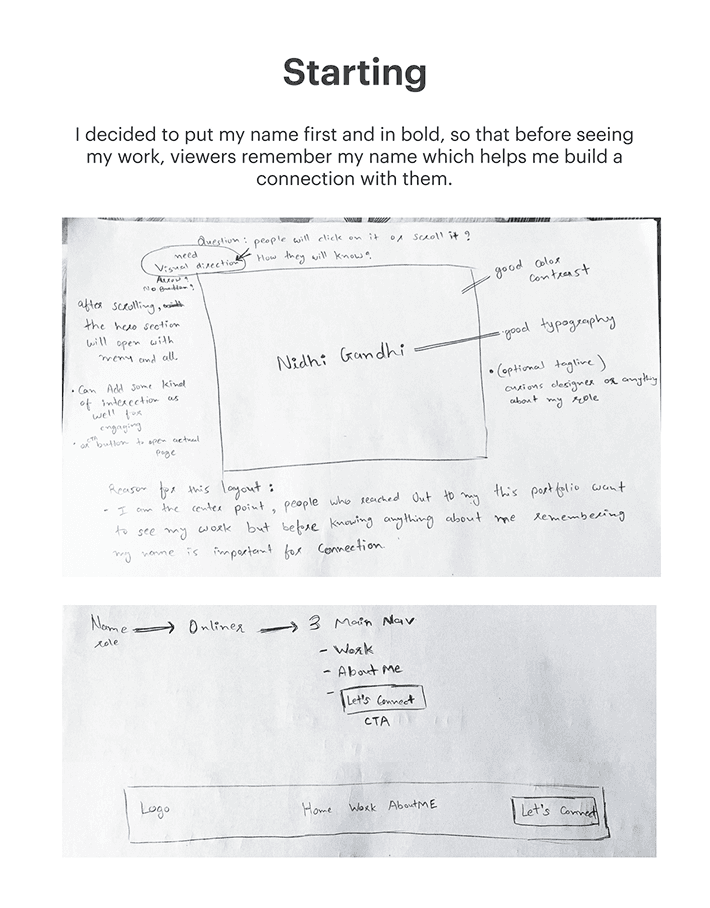 Starting
I decided to put my name first and in bold, so that before seeing
my work, viewers remember my name which helps me build a
connection with them.
Question : people will click on it or scroll it ?
How they will know?
need
Visual direction
Arrow?
No Button?
good color
contrast
after scrolling,
the hero section
will open with
menu and all.
Nidhi Gandhi
good typography
• (optional tagline)
curious designer or anything
about my role
• Can Add some kind
of interection as
well for
engaging
• or button to open actual
page
Reason for this layout :
- I am the center point, people who reached out to my this portfolio want
to see my work but before knowing anything about me remembering
my name is important for connection
Name → Onliner → 3 Main Nav
role
- Work
- About Me
- Let's Connect
CTA
Logo Home Work AboutME Let's Connect